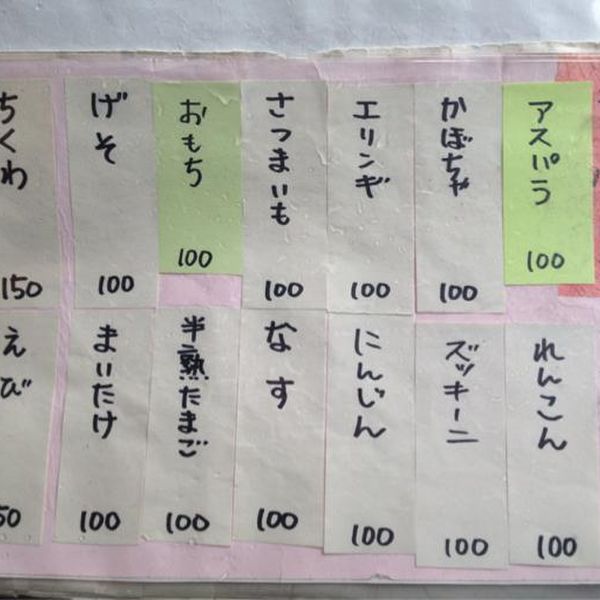 アスパラ
100
かぼちゃ
100
エリンギ
100
さつまいも
100
おもち
100
げそ
100
ちくわ
150
れんこん
100
ズッキーニ
100
にんじん
100
なす
100
半熟たまご
100
まいたけ
100
えび
50